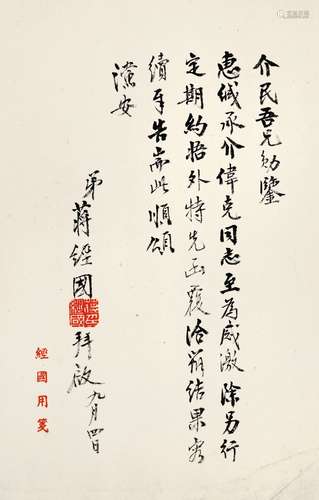 介民吾兄勛鑒
惠緘承介偉克同志至為感激除另行
定期約晤外特先函覆洽談結果容
續奉告耑此順頌
黨安
弟
蔣經國
拜啟九月四日
經國用箋